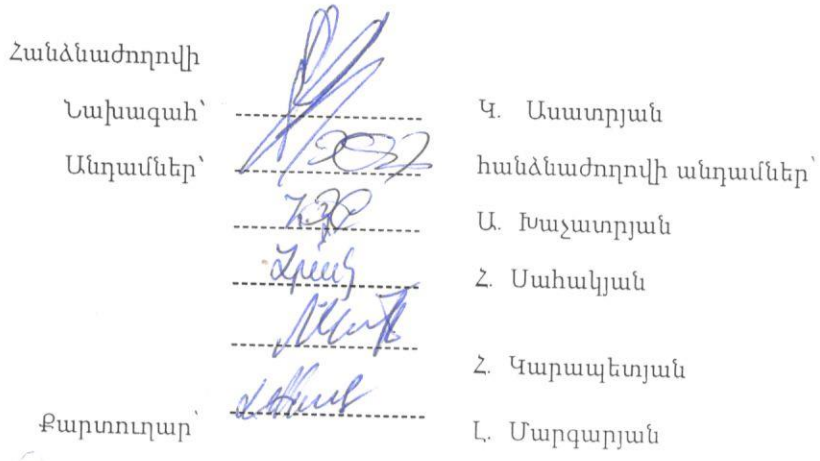 Հանձնաժողովի
Նախագահ՝ Կ. Ասատրյան
Անդամներ՝ հանձնաժողովի անդամներ՝
Ա. Խաչատրյան
Հ. Սահակյան
Հ. Կարապետյան
Քարտուղար՝ Լ. Մարգարյան